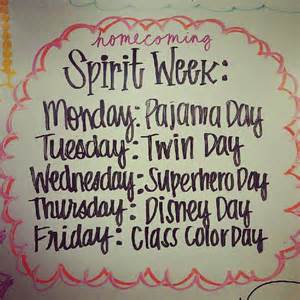 homecoming
Spirit Week:
Monday: Pajama Day
Tuesday: Twin Day
Wednesday: Superhero Day
Thursday: Disney Day
Friday: Class Color Day